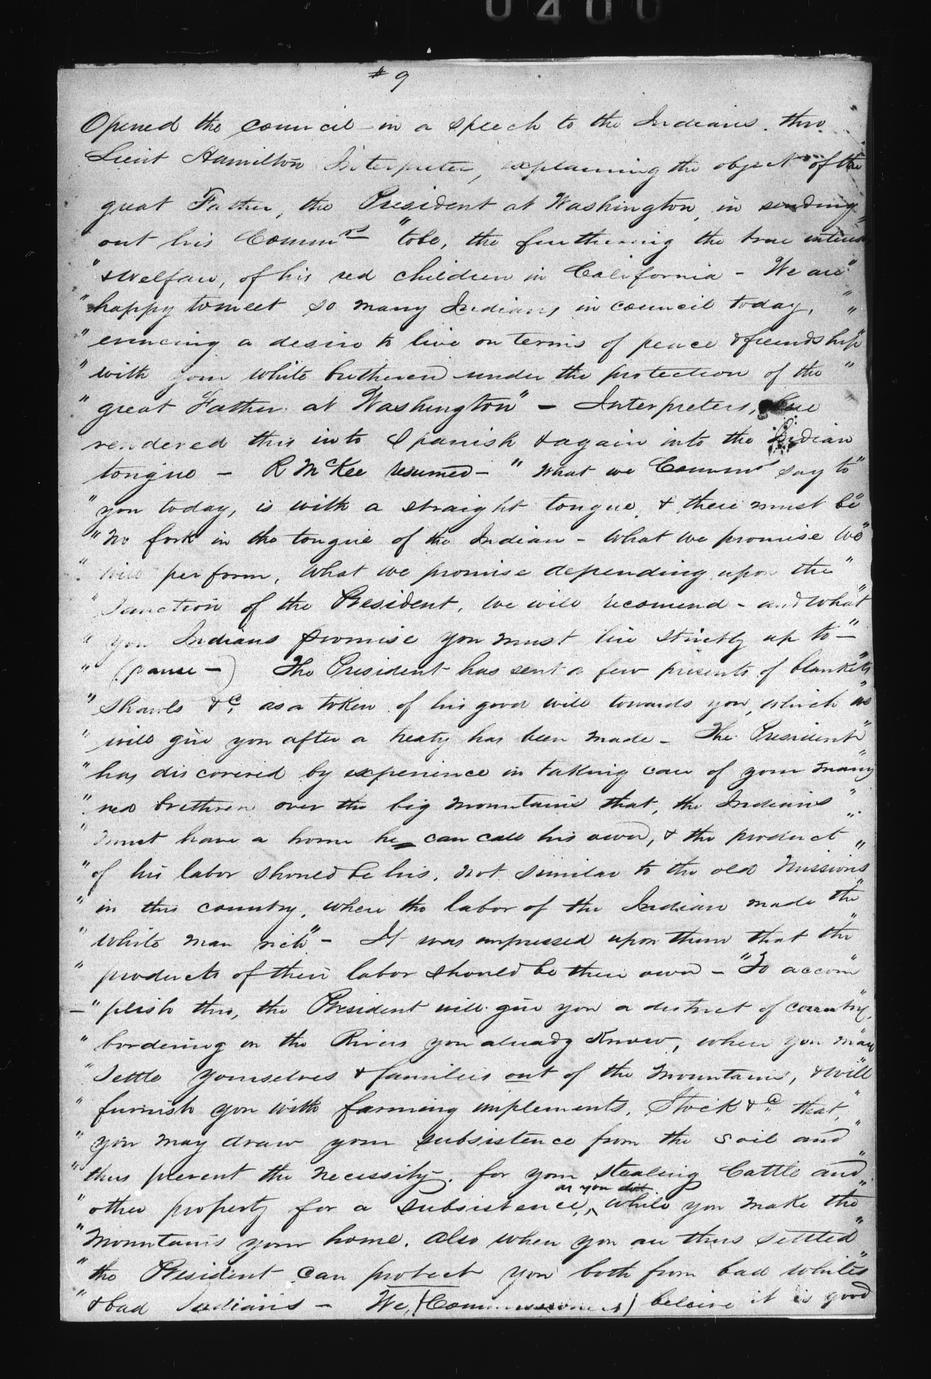 0400
# 9
Opened the council in a speech to the Indians. thro
Lieut Hamilton Interpreter, explaining the object of the
great Father, the President at Washington, in sending
out his Commrs "tobe, the furthering the true
"& welfare, of his red children in California - We are"
"happy to meet so many Indians, in council today, "
"evincing a desire to live on terms of peace & friendship"
"with your white brethren under the protection of the "
"great Father at Washington" - Interpreters,
rendered this into Spanish & again into the Indian
tongue - R McKee resumed - "What we Commrs say to"
"you today, is with a straight tongue & there must be"
"No fork in the tongue of the Indian - What we promise We"
"will perform, What we promise depending upon the"
"Sanction of the President, We will recomend - and What"
"you Indians promise you must live strictly up to -"
"(pause -) The President has sent a few presents of blankets"
"Shawls &c, as a token of his good will towards you, which we"
"will give you after a treaty has been made - The President"
"has discovered by experience in taking care of your many
"red brethren over the big mountains that, the Indians"
"must have a home he can call his own, & the product"
"of his labor should be his, not similar to the old Missions
"in this country, where the labor of the Indian made the"
"white man rich" - It was impressed upon them that the"
"products of their labor should be their own - "To accom"
-"plish this, the President will give you a district of country,
"bordering on the Rivers you already know, where you may
"Settle yourselves & families out of the mountains, & will"
"furnish you with farming implements, Stock &c that,"
"you may draw your subsistence from the soil and"
"thus prevent the necessity, for your stealing Cattle and"
"other property for a subsistence, as you did while you make the"
"Mountains your home. Also when you are thus settled"
"the President can protect you both from bad whites"
"& bad Indians - We, (Commissioners) beleive it is good